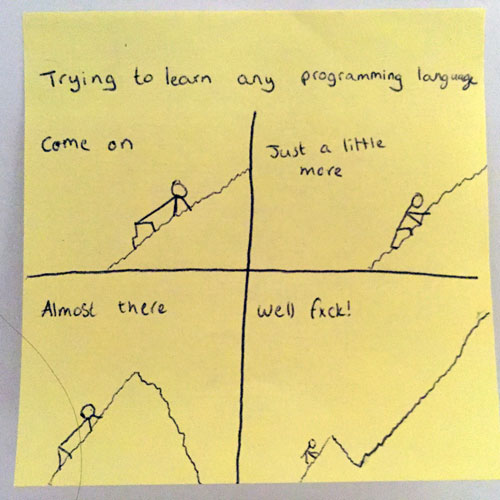 Trying to learn any programming language
Come on
Just a little
more
Almost there
Well fxck!